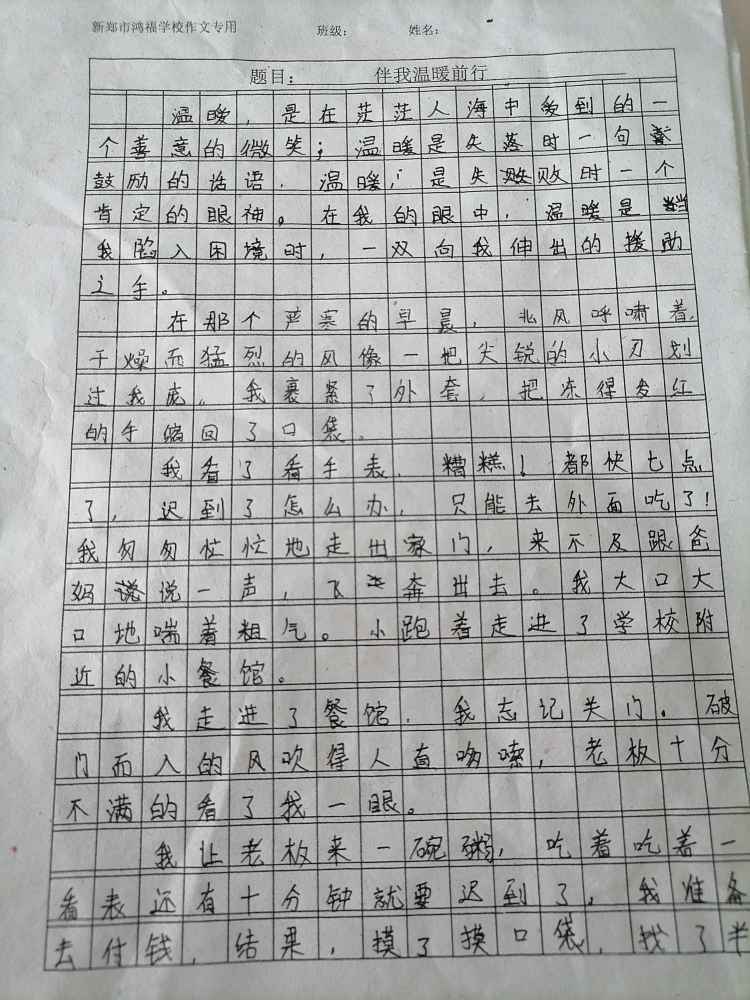 新郑市鸿福学校作文专用 班级： 姓名：
题目： 伴我温暖前行
温暖，是在茫茫人海中爱到的一
个善意的微笑；温暖是失落时一句
鼓励的话语，温暖，是失败时一个
肯定的眼神。在我的眼中，温暖是
我陷入困境时，一双向我伸出的援助
之手。
在那个严寒的早晨，北风呼啸着，
干燥而猛烈的风像一把尖锐的小刃划
过我庞。我裹紧了外套，把冻得发红
的手缩回了口袋。
我看了看手表，糟糕！都快七点
了，迟到了怎么办，只能去外面吃了！
我匆匆忙忙地走出家门，来不及跟爸
妈说一声，飞奔出去。我大口大
口地喘着粗气。小跑着走进了学校附
近的小餐馆。
我走进了餐馆，我忘记关门。破
门而入的风吹得人直哆嗦，老板十分
不满的看了我一眼。
我让老板来一碗粥，吃着吃着一
看表还有十分钟就要迟到了。我准备
去付钱，结果，摸了摸口袋，找了半